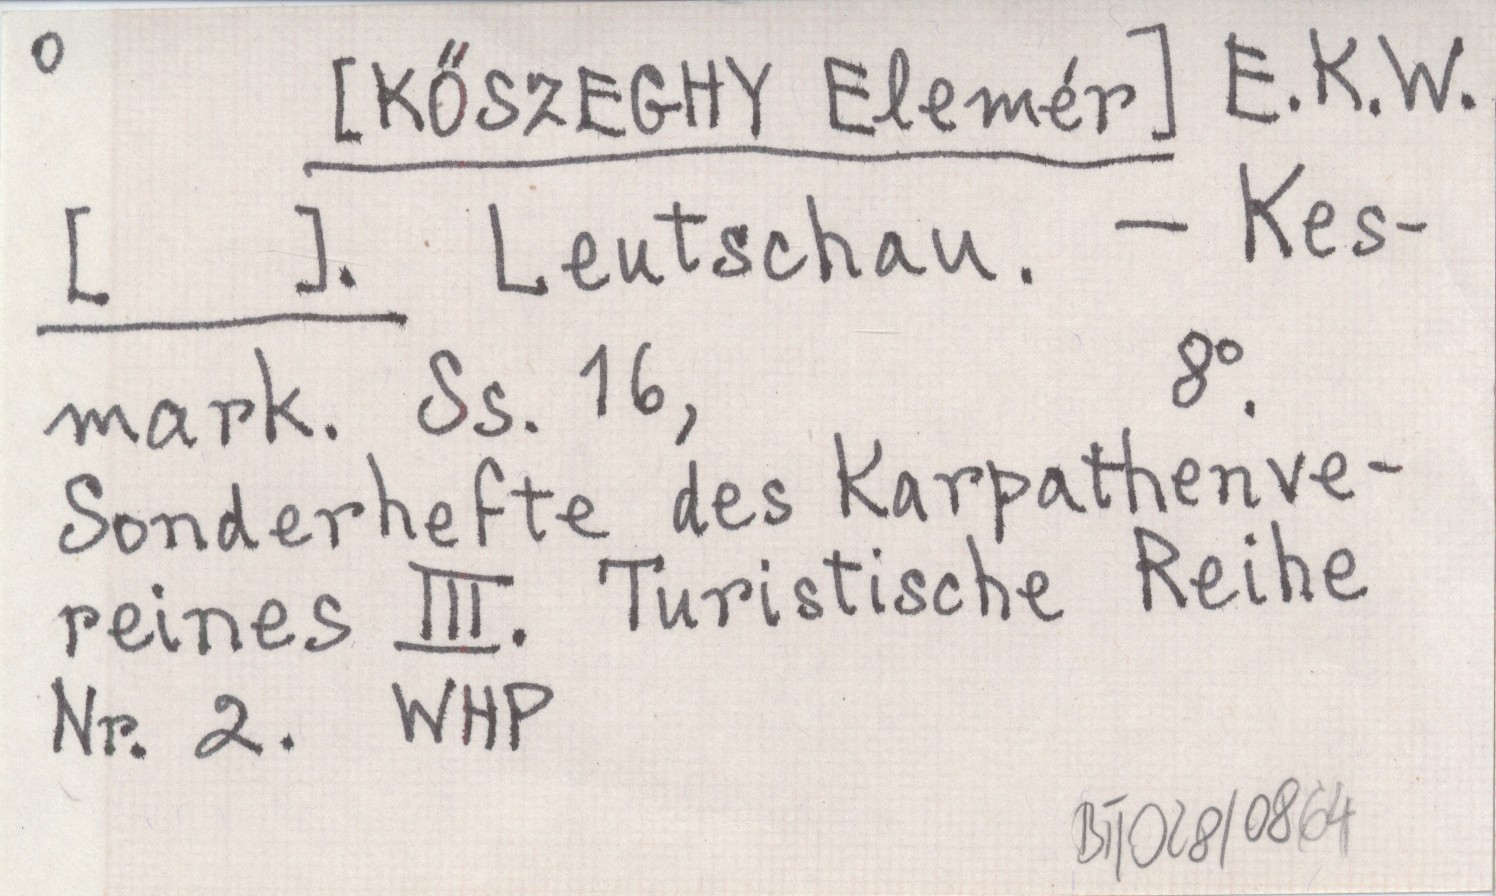 o
[KŐSZEGHY Elemér] E.K.W.
[ ]. Leutschau. – Kes-
mark. Ss. 16, 8°.
Sonderhefte des Karpathenve-
reines III. Turistische Reihe
Nr. 2. WHP
BT/028/0864